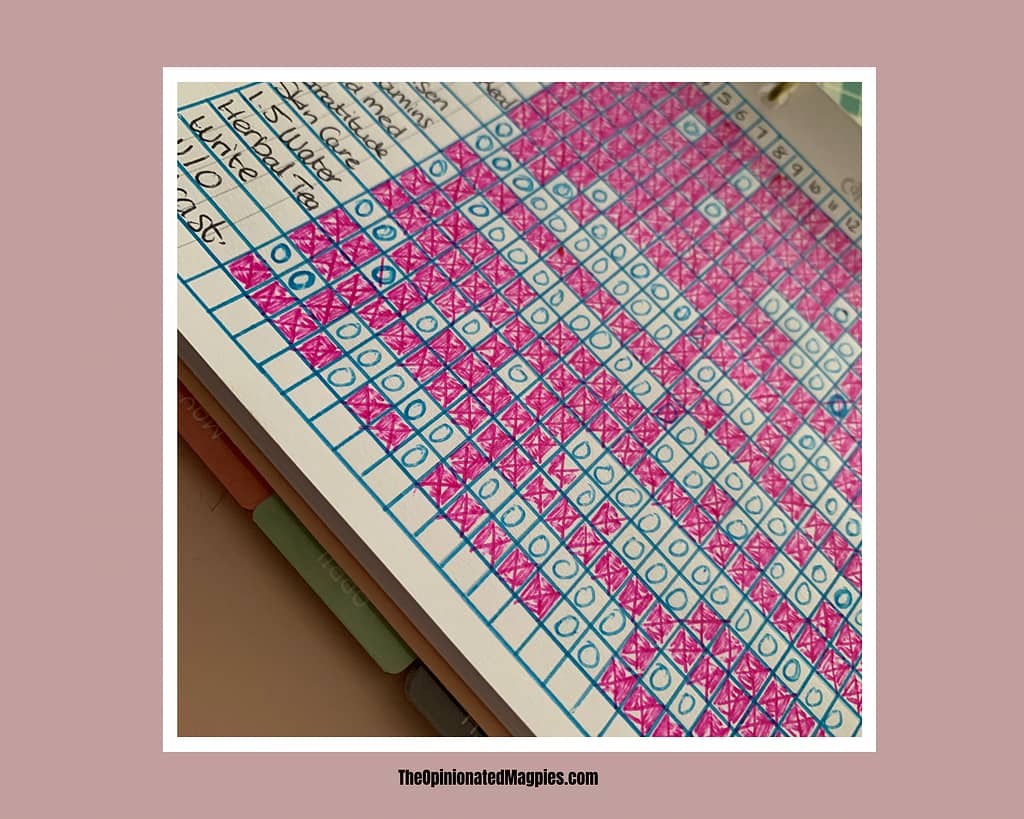 Need
sen
amins
d med
ratitude
Skin Care
1.5 Water
Herbal Tea
Write
1/0
cast.
5 6 7 8 9 10 11 12
MAY
APRIL
TheOpinionatedMagpies.com